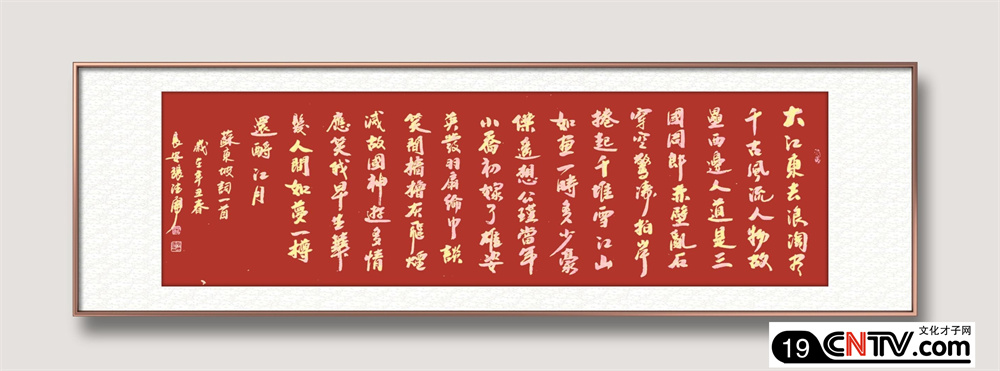 大江東去浪淘盡
千古風流人物故
壘西邊人道是三
國周郎赤壁亂石
穿空驚濤拍岸
捲起千堆雪江山
如畫一時多少豪
傑遙想公瑾當年
小喬初嫁了雄姿
英發羽扇綸巾談
笑間檣櫓灰飛煙
滅故國神遊多情
應笑我早生華
髮人間如夢一樽
還酹江月
蘇東坡詞一首
歲在辛丑春
長安張
文化才子网
19 CNTV.com